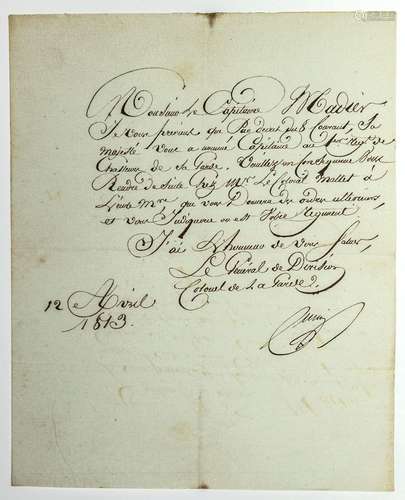 Monsieur Le Capitaine Madier
Je vous previens que Par decret du 8 Courant, Sa
Majesté vous a nommé Capitaine au 1er Regt de
Chasseurs de sa Garde. Veuillez en conséquence vous
Rendre de Suite chéz Mr. Le Colonel Mallet à
qui vous Donnera des ordres ulterieurs,
et vous Indiquera ou est votre Regiment
J'ai L'honneur de vous Saluer,
Le Général de Division
Colonel de La Garde
12 Avril
1813.